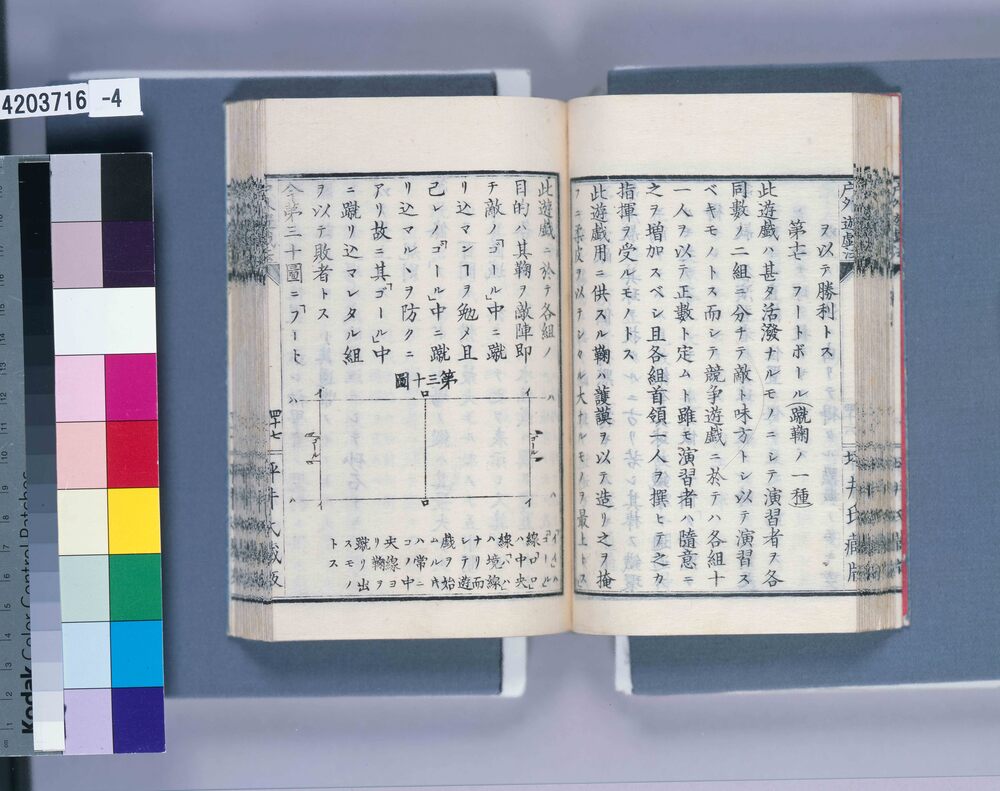 4203716 -4
Kodak Color Control Patches
戸外遊戯法
坪井氏藏版
ヲ以テ勝利トス
第十七 フートボール(蹴鞠ノ一種)
此遊戯ハ甚タ活潑ナルモノニシテ演習者ヲ各
同數ノ二組ニ分チテ敵ト味方トシ以テ演習ス
ベキモノトス而シテ競争遊戯ニ於テハ各組十
一人ヲ以テ正數ト定ムト雖モ演習者ハ隨意ニ
之ヲ增加スベシ且各組首領一人ヲ撰ヒ之カ
指揮ヲ受ルモノトス
此遊戯用ニ供スル鞠ハ護謨ヲ以テ造リ之ヲ掩
フニ柔皮ヲ以テシタル大ナルモノヲ最上トス
此遊戯ニ於テ各組ノ
目的ハ其鞠ヲ敵陣即
チ敵ノ「ゴール」中ニ蹴
リ込マンヿヲ勉メ且
己レノ「ゴール」中ニ蹴
リ込マルヽヲ防クニ
アリ故ニ其「ゴール」中
ニ蹴リ込マレタル組
ヲ以テ敗者トス
今第三十圖ニ「フート
第三十圖
イ
ロ
イ
ゴール
ゴール
ハ
ハ
イ
ロ
イ
線「ロロ」
ハ中央
線「ハハ」
ハ境線
ナリ而
シテ遊
戯ヲ始
ムルハ
常ニ
此ノ中
央線ヨ
リ鞠ヲ
蹴リ出
スモノ
トス
四十七
坪井氏藏版